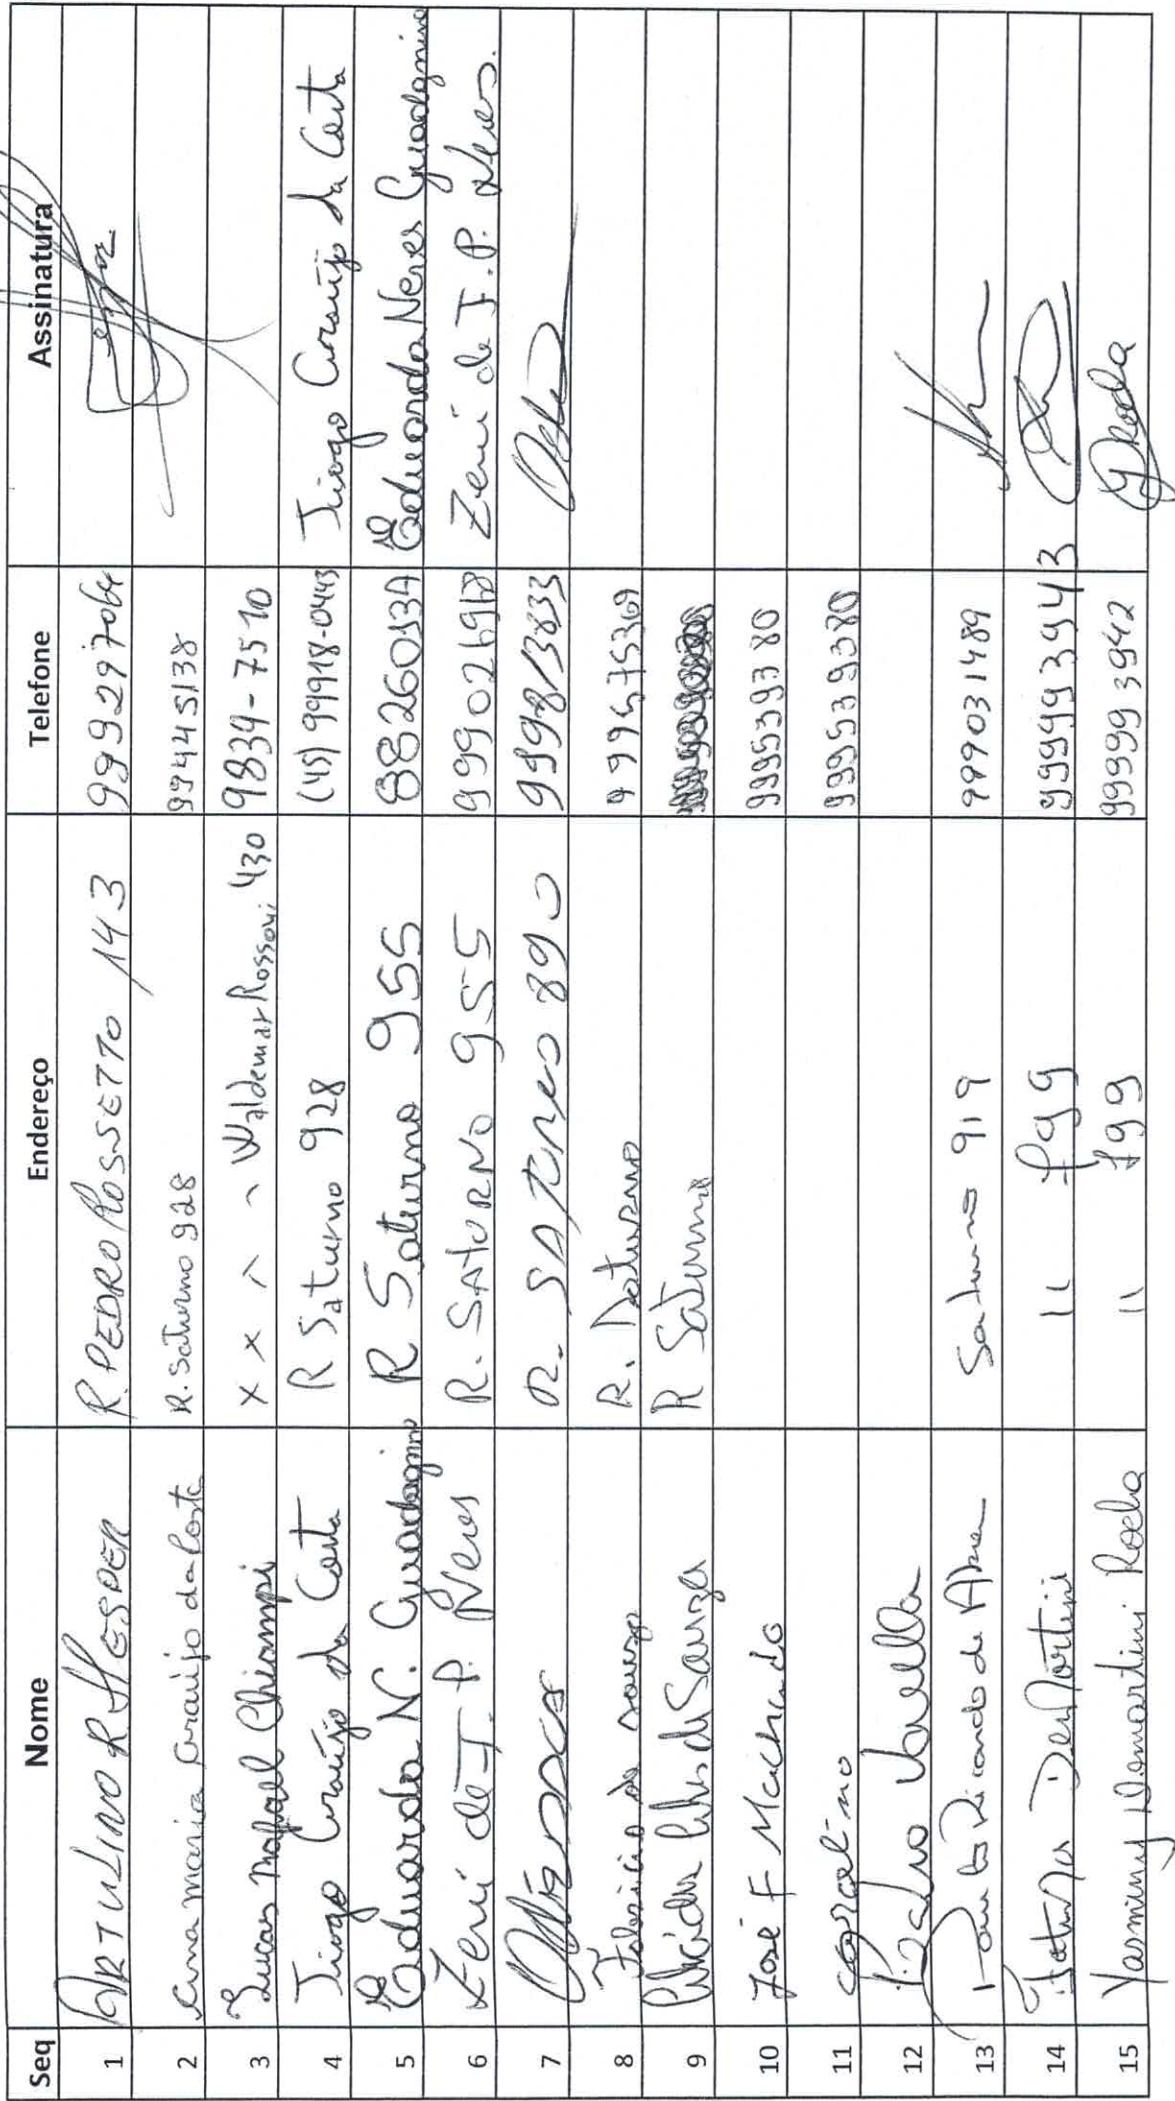 Seq Nome Endereço Telefone Assinatura
1 ARTULINO R HESPER R. PEDRO ROSSETTO 143 999297064
2 Ana maria Araújo da Costa R. Saturno 928 99445138
3 Lucas Rafael Waldemar Rossoni 430 9834-7510
4 Tiago Araújo da Costa R Saturno 928 (45) 99918-0443 Tiago Araújo da Costa
5 Eduardo N. Guadagnin R Saturno 955 88260134 Eduardo Neres Guadagnino
6 Zeni de J. P. Neres R. SATURNO 955 Zeni de J. P. Neres.
7 R. SATURNO 890
8 Fabricio de souza R. Saturno 999575369
9 de Souza R Saturno
10 José F Machado 999539380
11 999539380
12
13 Paulo Ricardo de Saturno 919 999031489
14 Demartini 11 999993943
15 Yasminy Demartini Rocha 11 199 999993942